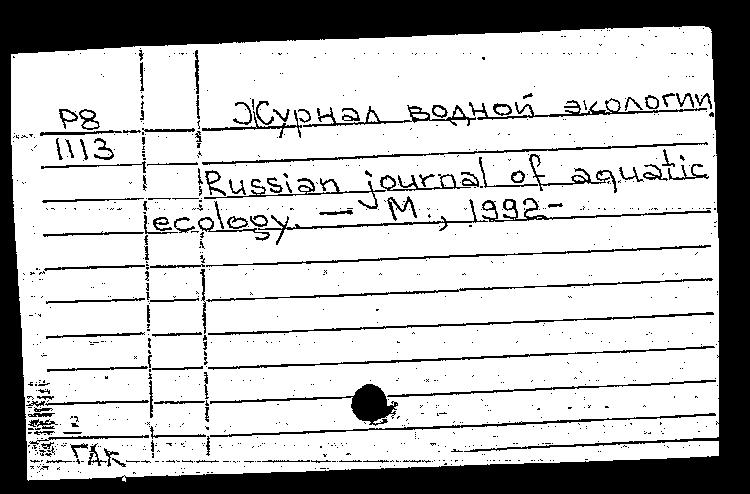 Р8 Журнал водной экологии
1113
Russian journal of aquatic
ecology. — М., 1992-
2
ГАК